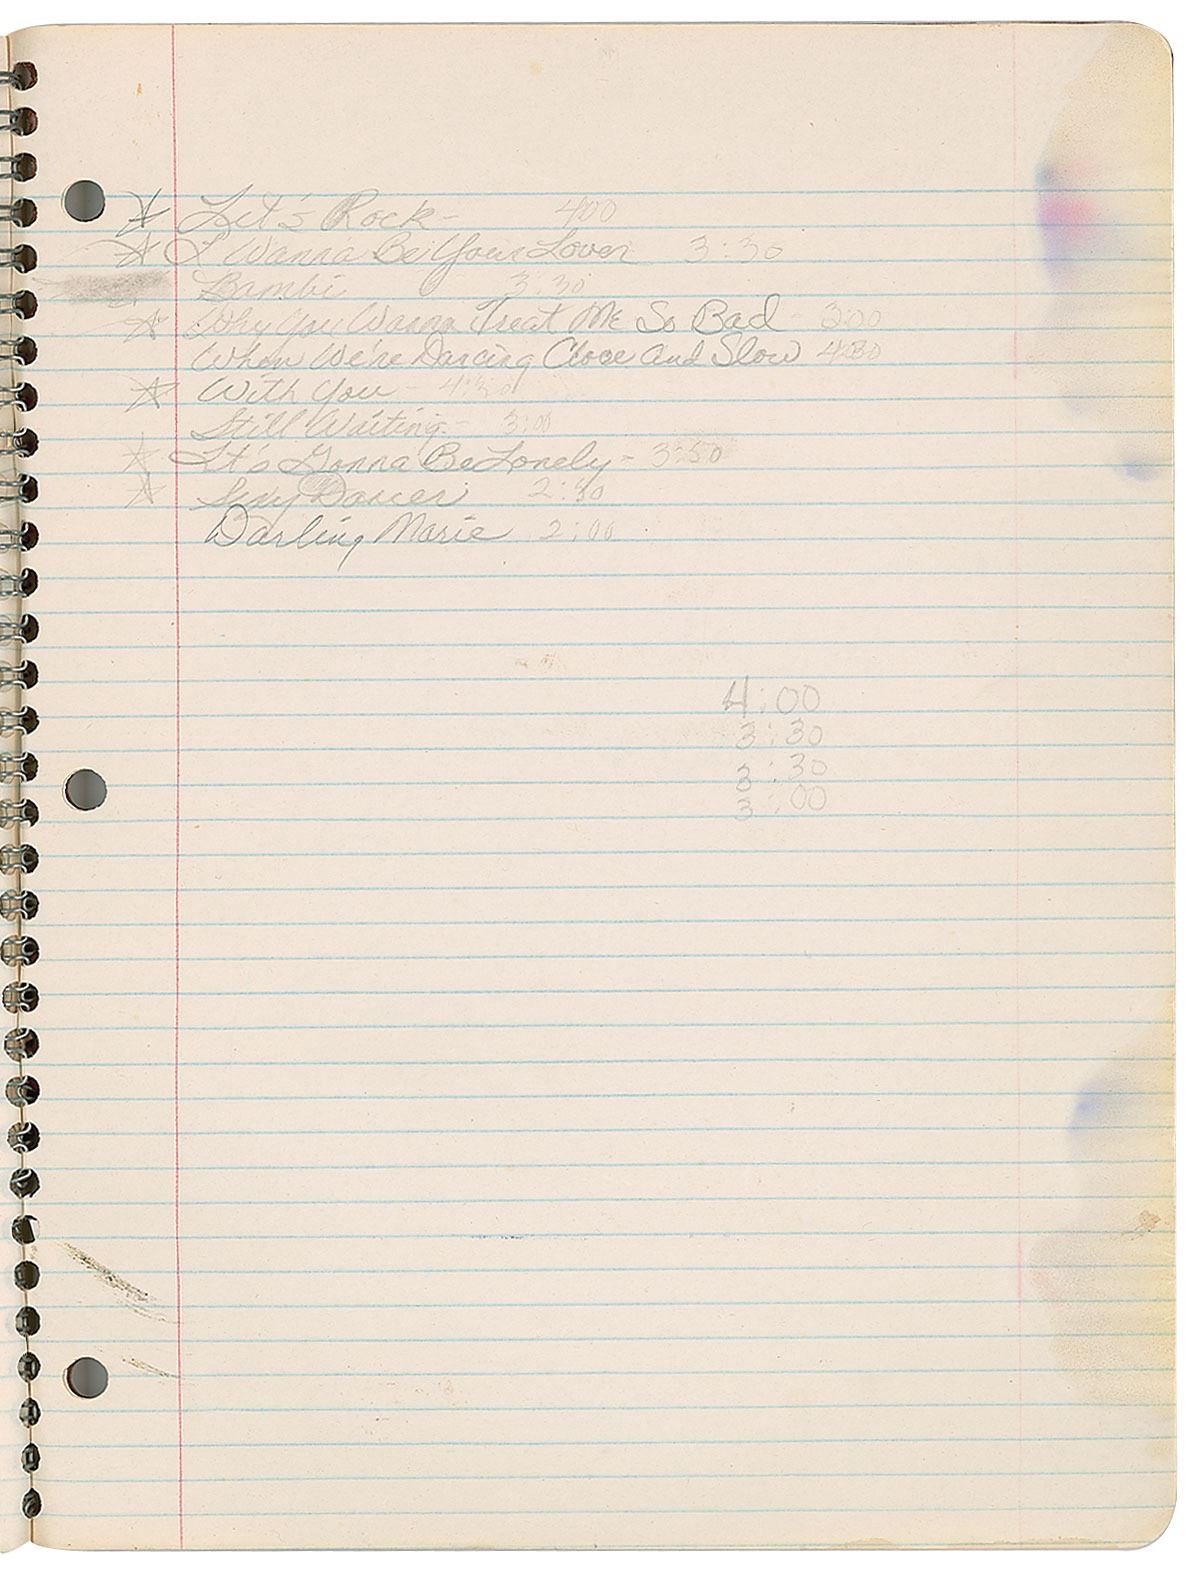 ☆ Let's Rock - 400
☆ I Wanna Be Your Lover 3:30
Bambi 3:30
☆ Why You Wanna Treat Me So Bad - 3:00
When We're Dancing Close And Slow 4:30
☆ With You - 4:30
Still Waiting - 3:00
☆ It's Gonna Be Lonely - 3:50
☆ Sexy Dancer 2:30
Darling Marie 2:00
4:00
3:30
3:30
3:00